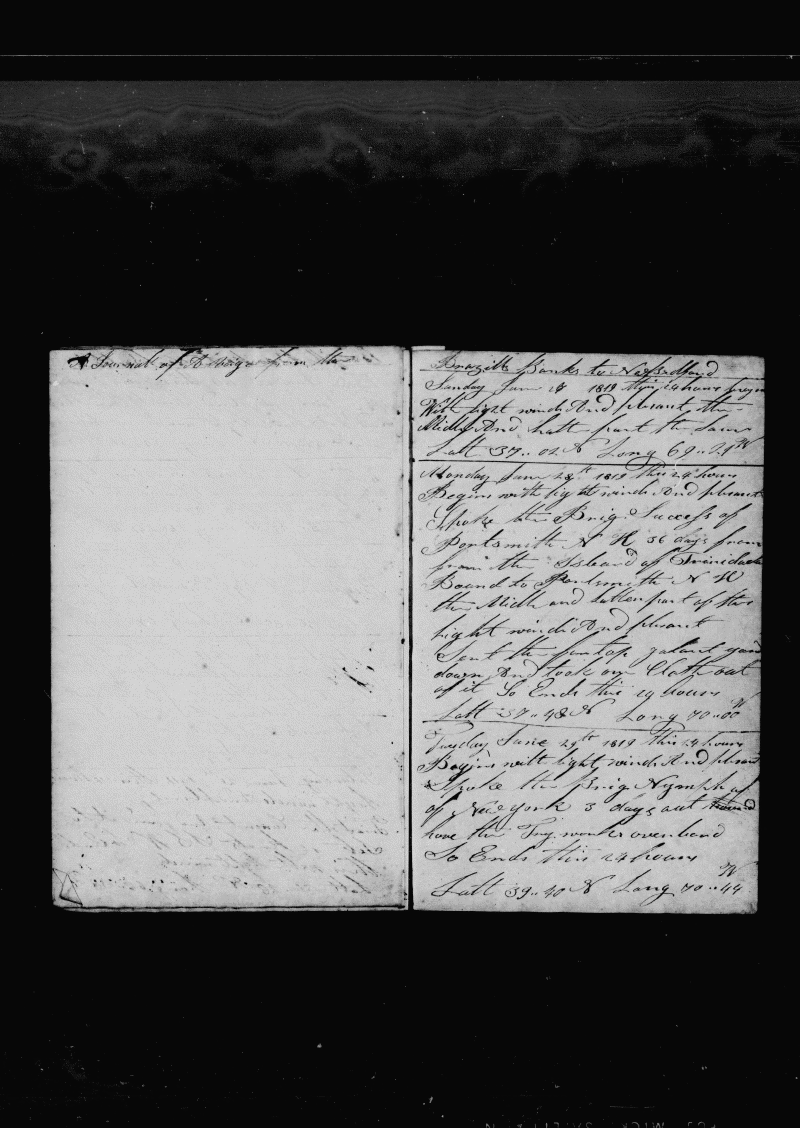 A Journal of A Voige from the
Brazills Banks to N Bedford
Sunday June 27 1819 this 24 hours begins
With light winds And plesant the
Midle And latt part the same
Latt 37.. 02 N Long 69.. 21 W
Monday June 28th 1819 this 24 hours
Begins with light winds And plesant
Spoke the Brig Success of
Portsmith N H 36 days from
from the Island of Trinidad
Bound to Portsmith N H
the Midle and latter part of the
light winds And plesant
Sent the fore top galant yard
down And took our Cloths out
of it So Ends this 24 hours
Latt 37.. 48 N Long 70.. 00 W
Tuesday June 29th 1819 this 24 hours
Begins with light winds And plesant
Spoke the Brig Nymph of
of New York 3 days out
hove the Try works over board
So Ends this 24 hours
Latt 39.. 40 N Long 70.. 44 W